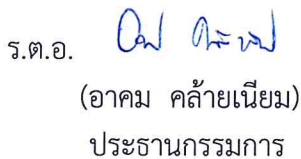 ร.ต.อ.
(อาคม คล้ายเนียม)
ประธานกรรมการ